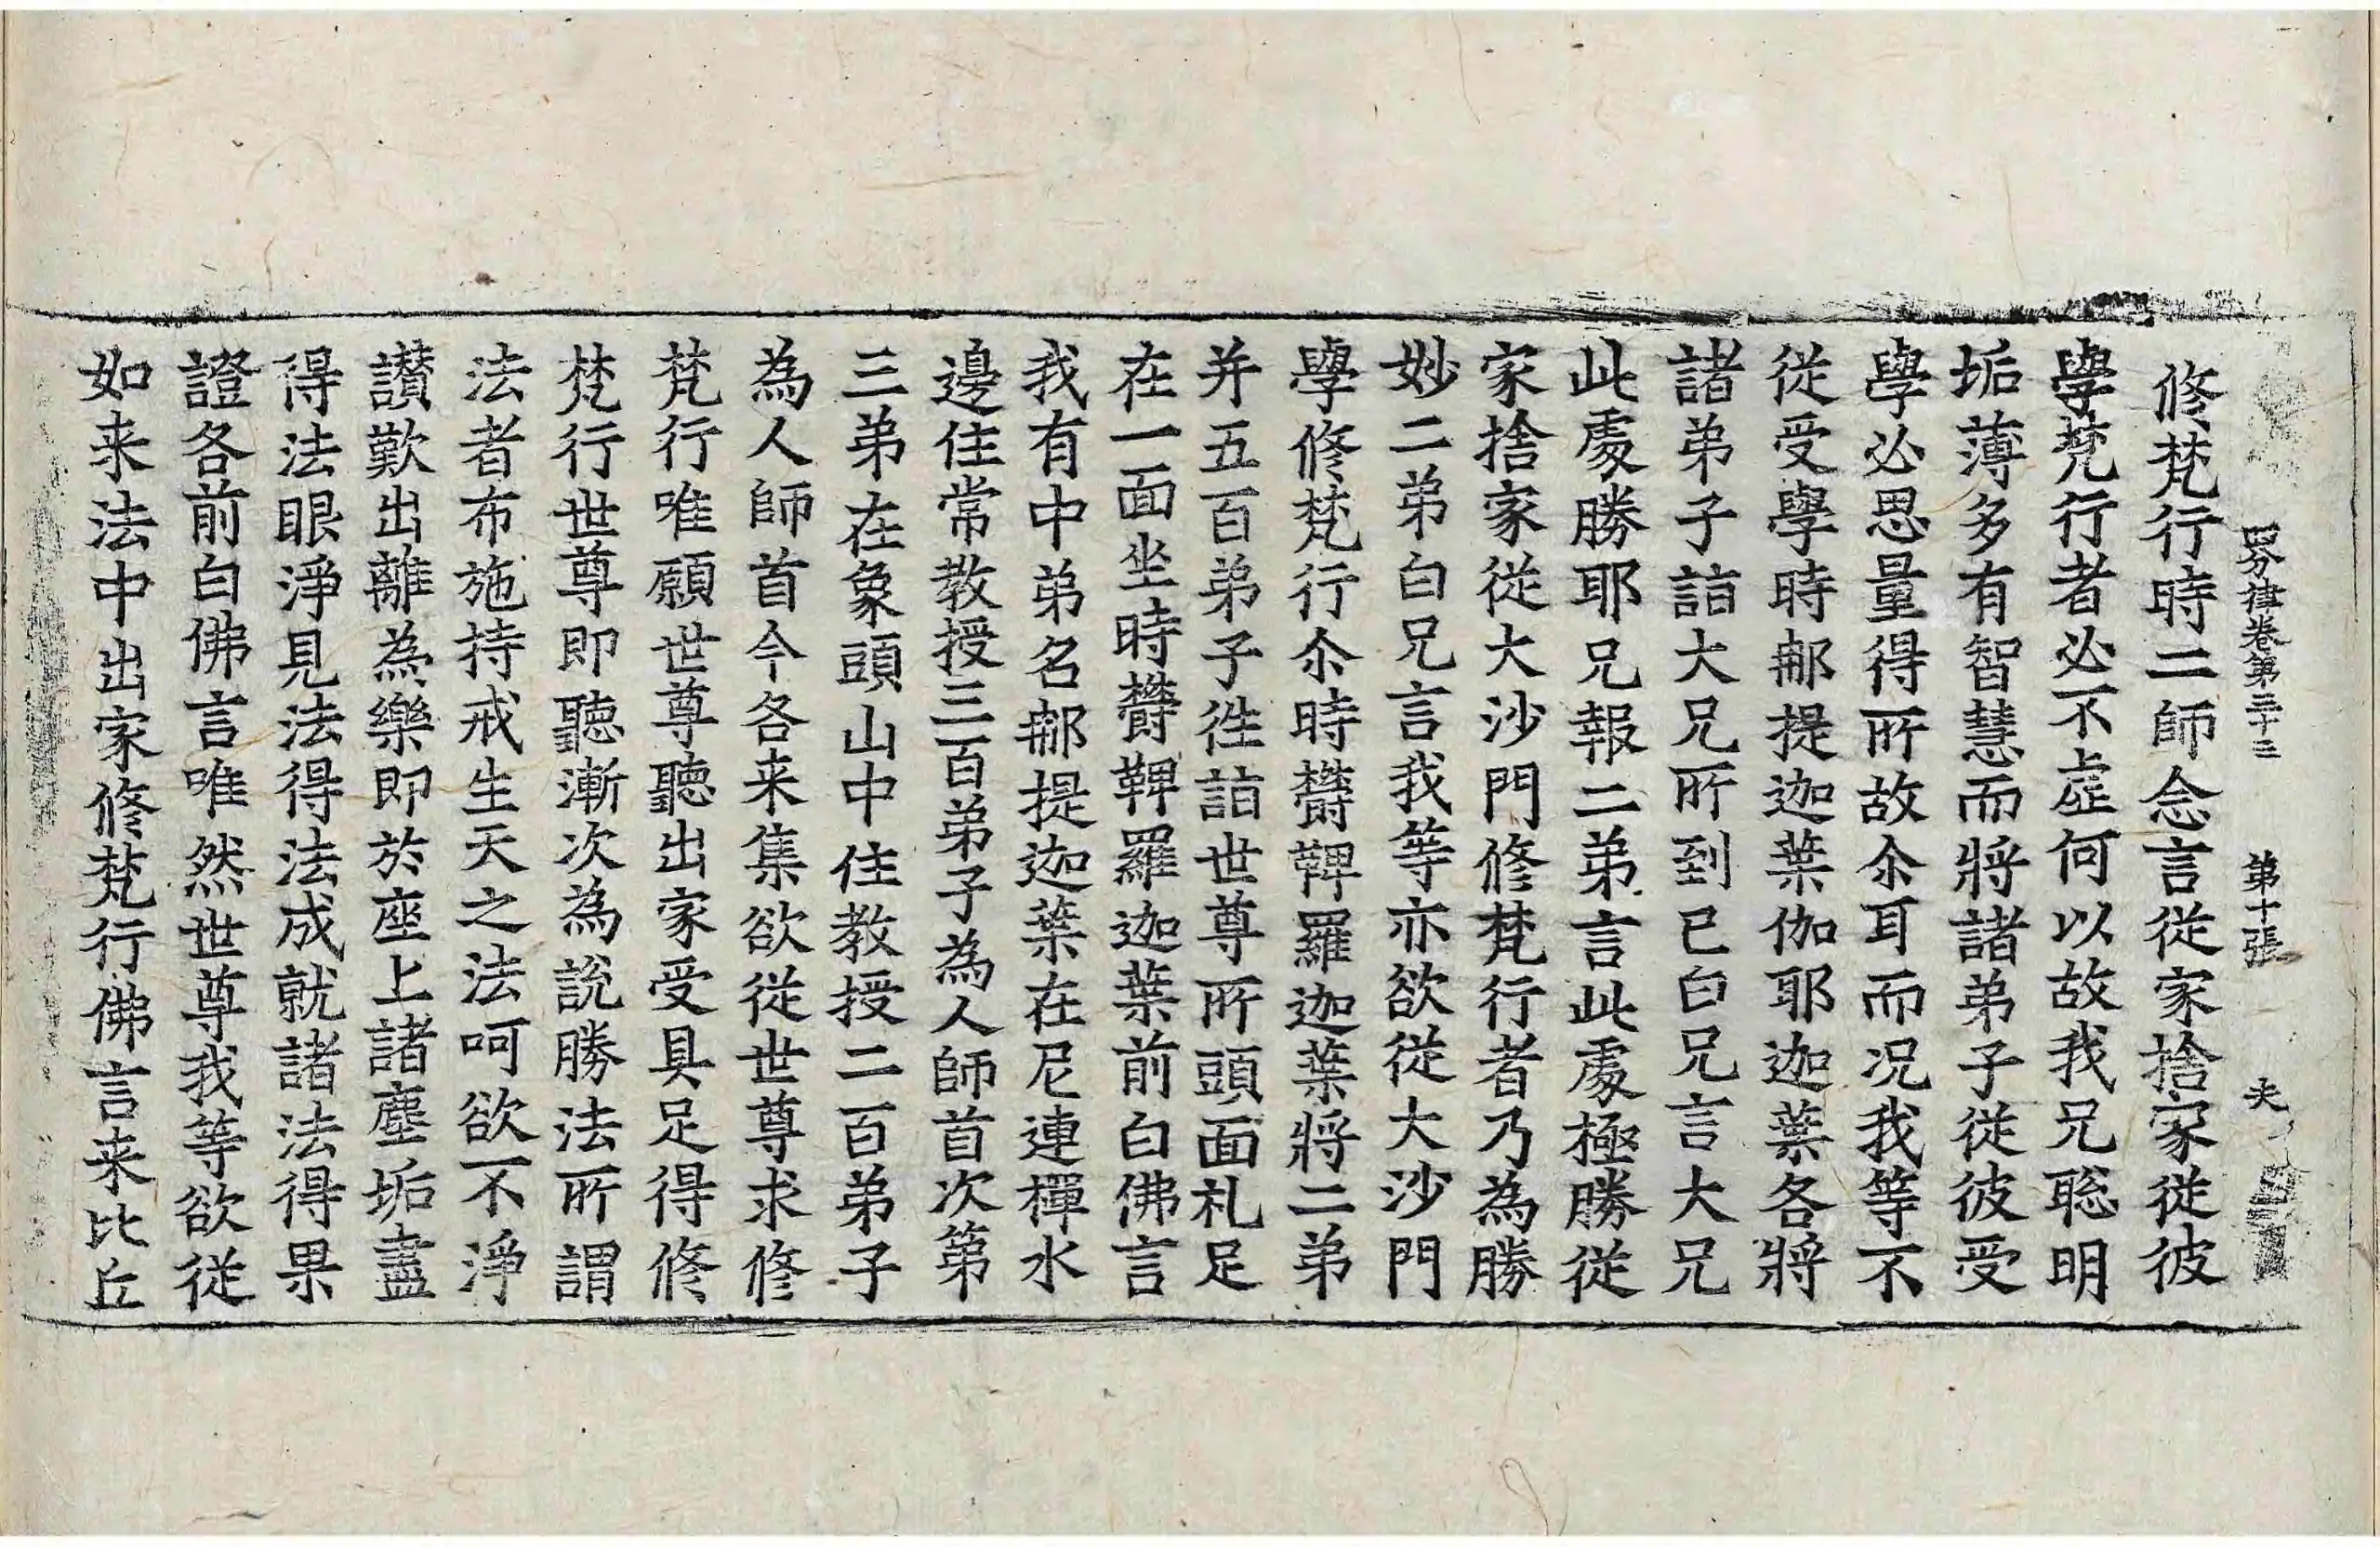 四分律卷第三十三 第十張 夫
修梵行時二師念言從家捨家從彼
學梵行者必不虛何以故我兄聡明
垢薄多有智慧而將諸弟子從彼受
學必思量得所故尒耳而况我等不
從受學時郍提迦葉伽耶迦葉各將
諸弟子詣大兄所到已白兄言大兄
此處勝耶兄報二弟言此處極勝從
家捨家從大沙門修梵行者乃為勝
妙二弟白兄言我等亦欲從大沙門
學修梵行尒時欝鞞羅迦葉將二弟
并五百弟子徃詣世尊所頭面礼足
在一面坐時欝鞞羅迦葉前白佛言
我有中弟名郍提迦葉在尼連禪水
邊住常教授三百弟子為人師首次第
三弟在象頭山中住教授二百弟子
為人師首今各来集欲從世尊求修
梵行唯願世尊聽出家受具足得修
梵行世尊即聽漸次為說勝法所謂
法者布施持戒生天之法呵欲不淨
讃歎出離為樂即於座上諸塵垢盡
得法眼淨見法得法成就諸法得果
證各前白佛言唯然世尊我等欲從
如来法中出家修梵行佛言来比丘